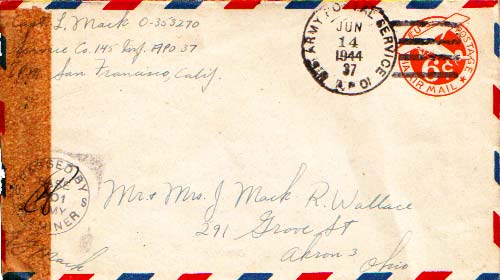 Capt. L. Mack O-353270
Service Co. 145 Inf. APO 37
San Francisco, Calif.
U.S. ARMY POSTAL SERVICE
JUN
14
1944
37
A.P.O.
U.S. POSTAGE
6¢
VIA AIR MAIL
PASSED BY
ARMY EXAMINER
Mack
Mr. + Mrs. J. Mack R. Wallace
291 Grove St
Akron 3
Ohio